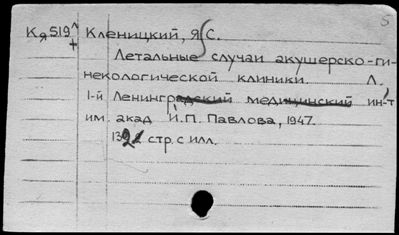 Кя519^ Кленицкий, Я.С.
+
Летальные случаи акушерско-ги-
некологической клиники. Л.
1-й Ленинградский медицинский ин-т
им. акад И.П. Павлова, 1947.
132 стр. с илл.